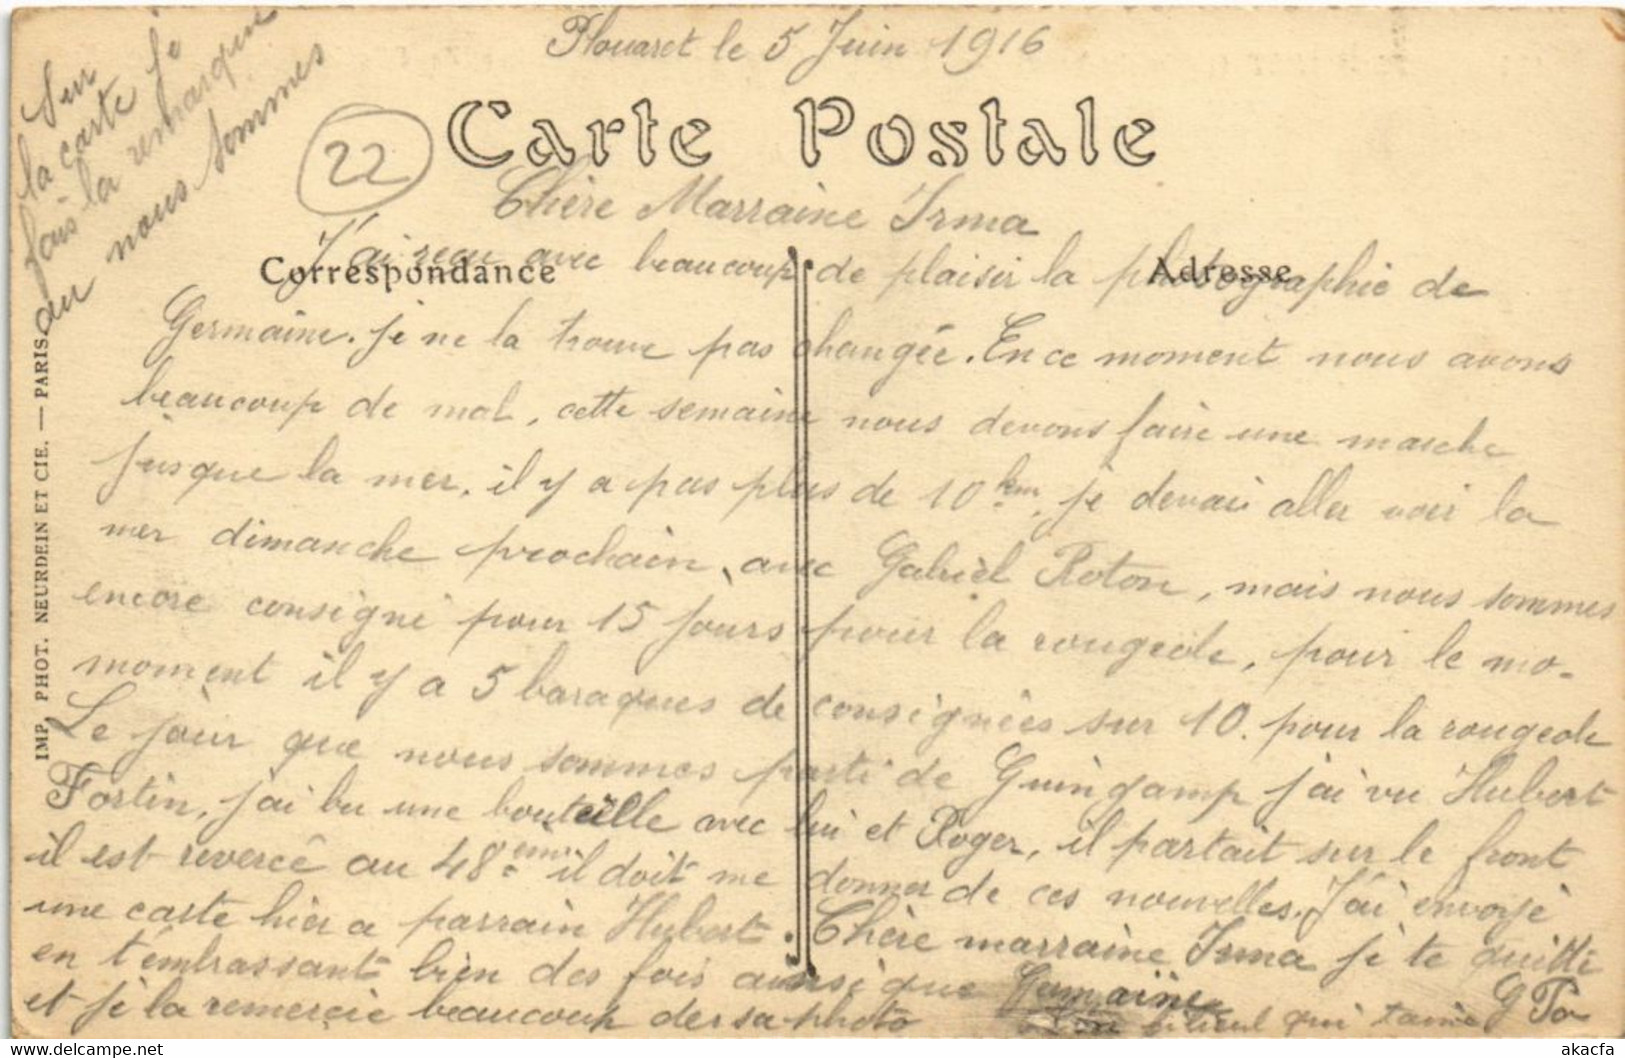 Plouaret le 5 Juin 1916
Sur
la carte je
fais la remarque
ou nous sommes
22
Carte Postale
Chère Marraine Irma
Correspondance
Adresse
J'ai reçu avec beaucoup de plaisir la photographie de
Germaine. je ne la trouve pas changée. En ce moment nous avons
beaucoup de mal, cette semaine nous devons faire une marche
jusque la mer, il y a pas plus de 10 km, je devais aller voir la
mer dimanche prochain, avec Gabriel Roton, mais nous sommes
encore consigné pour 15 jours pour la rougeole, pour le mo-
moment il y a 5 baraques de consignées sur 10. pour la rougeole
Le jour que nous sommes parti de Guingamp j'ai vu Hubert
Fortin, j'ai bu une bouteille avec lui et Roger, il partait sur le front
il est reversé au 48ème il doit me donner de ces nouvelles. J'ai envoyé
une carte hier a parrain Hubert. Chère marraine Irma je te quitte
en t'embrassant bien des fois ainsi que Germaine
et je la remercie beaucoup der sa photo
filleul qui t'aime G
IMP. PHOT. NEURDEIN ET CIE. — PARIS.
akacfa